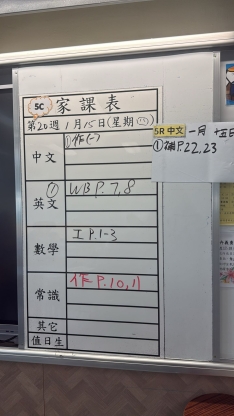 5C 家課表
第20週 1月15日(星期四)
中文 ①作(一)
英文 ① WB P.7,8
數學 工 P.1-3
常識 作 P.10,11
其它
值日生
5R 中文 一月 十五日
①補 P.22,23